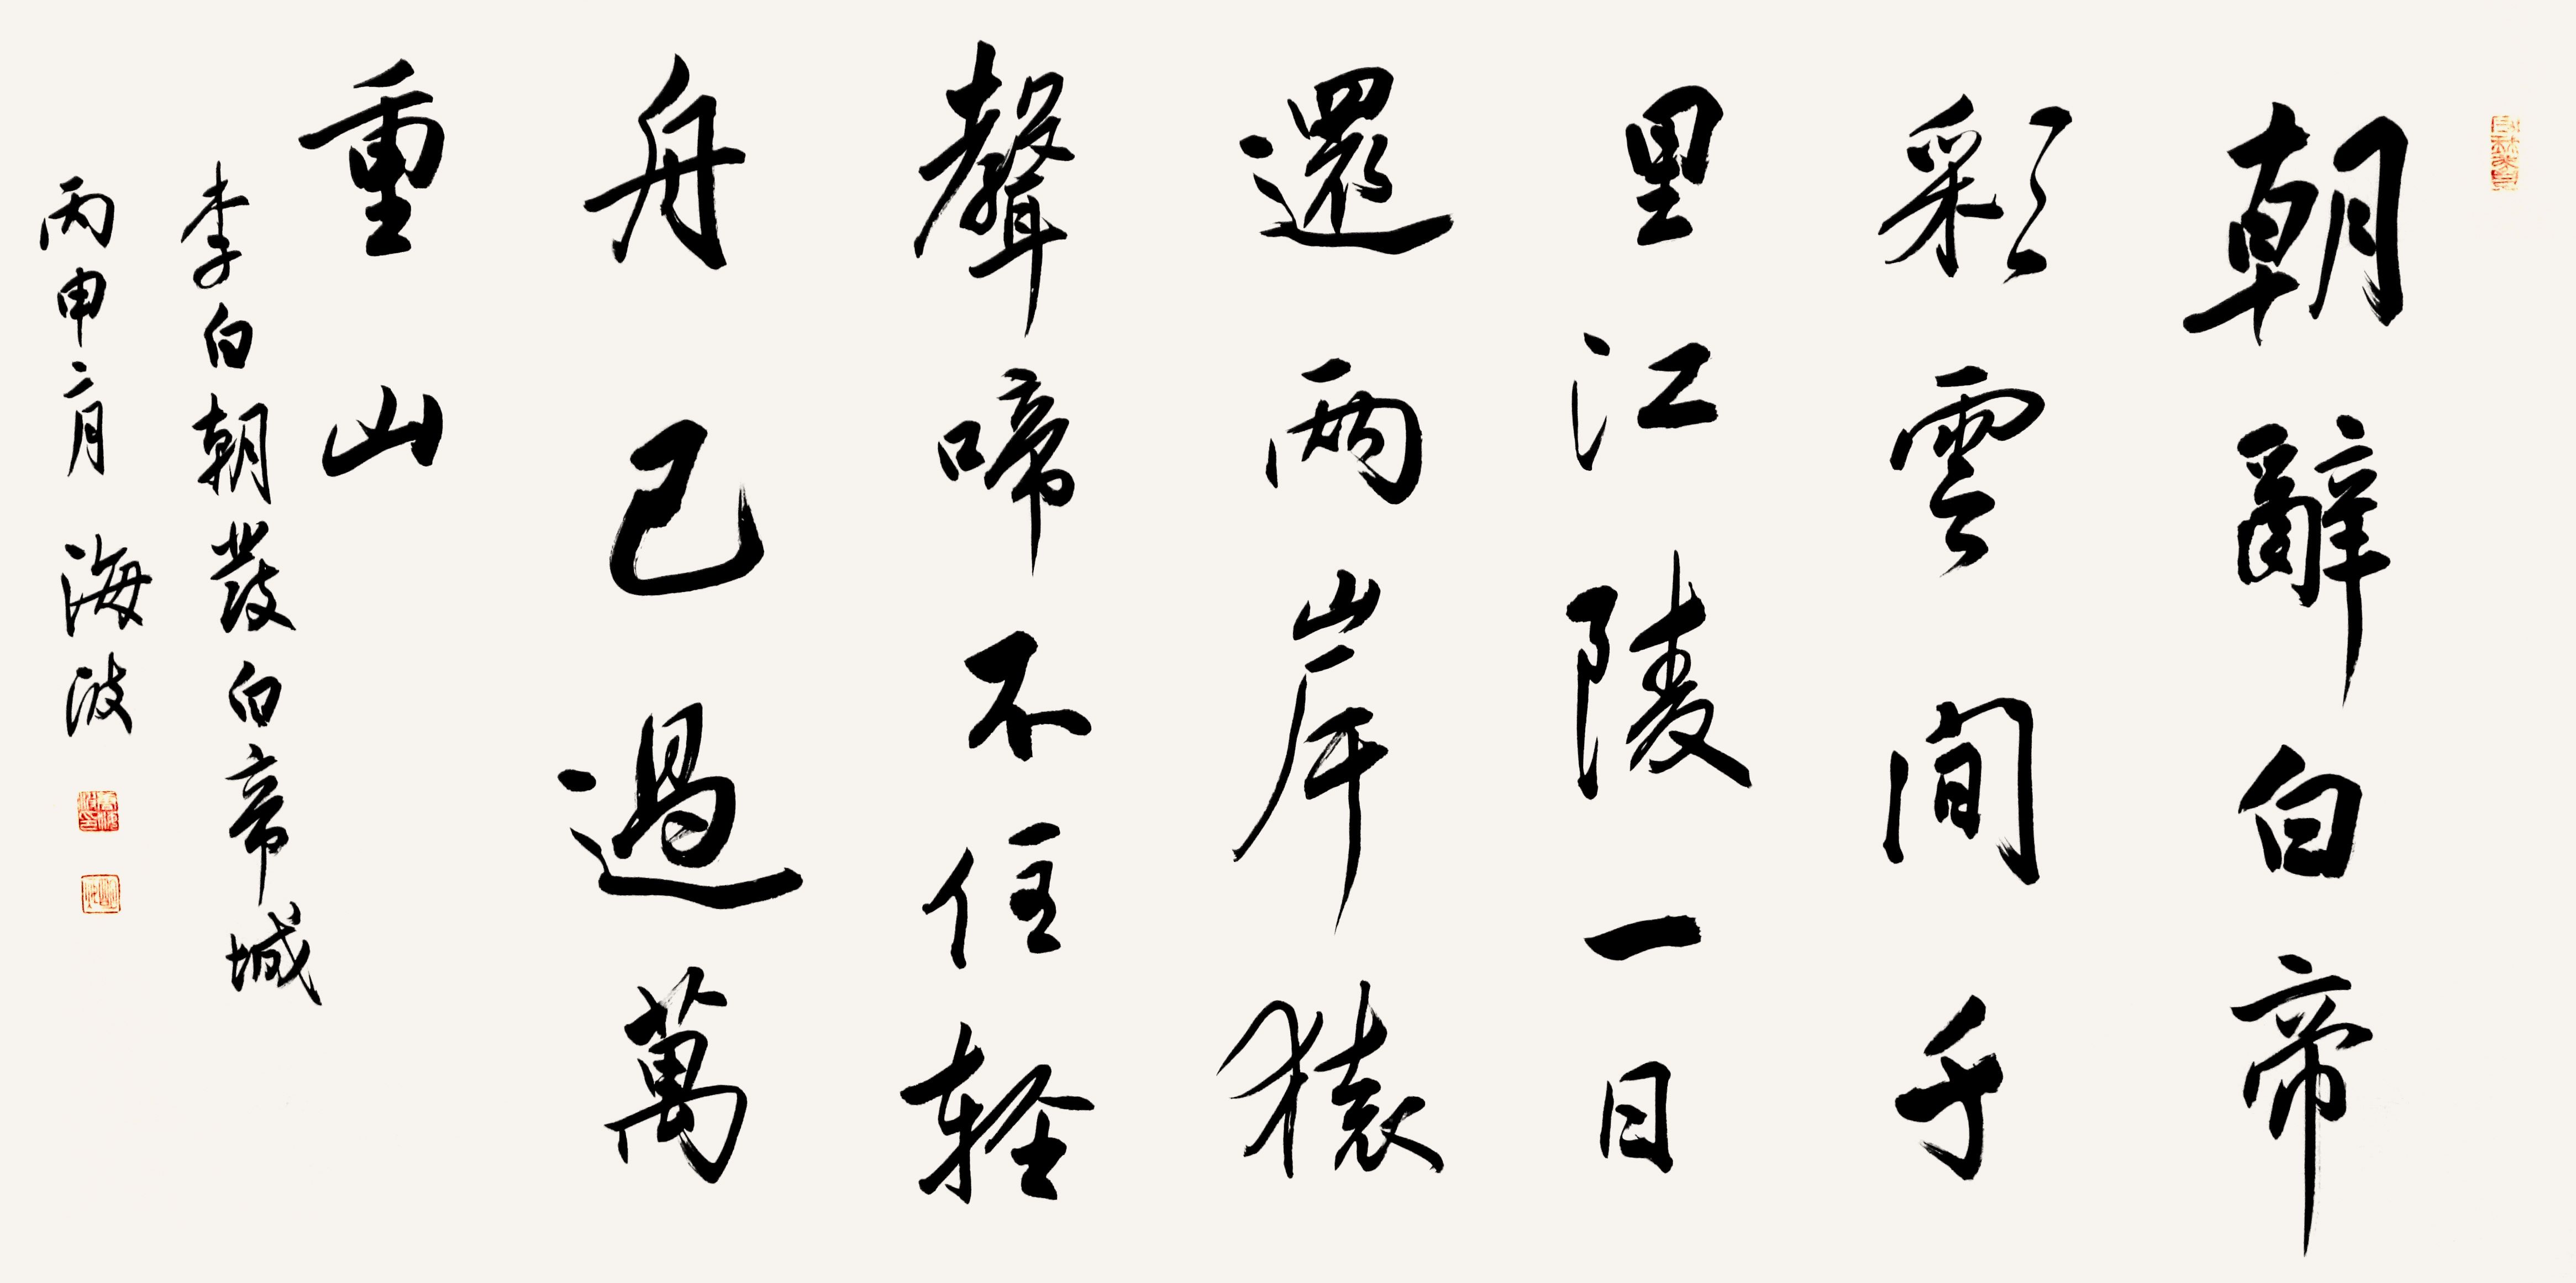 朝辭白帝
彩雲間千
里江陵一日
還兩岸猿
聲啼不住轻
舟已過萬
重山
李白朝發白帝城
丙申二月 海波